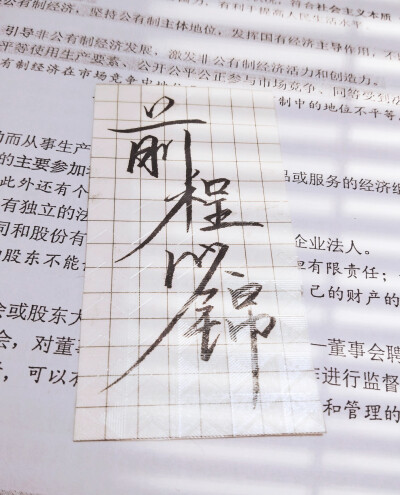 公有制经济，坚持公有制主体地位，发挥国有经济主导作用，不
引导非公有制经济发展，激发非公有制经济活力和创造力。
平等使用生产要素、公开公平公正参与市场竞争、同等受到
有制经济在市场竞争中
制中的地位不平等
前程似锦
而从事生产
品或服务的经济组
的主要参加
此外还有个
有独立的法
企业法人。
司和股份有
有限责任；
的股东不能
己的财产的
会或股东大
会，对董事
一董事会聘
，可以
进行监督
和管理的